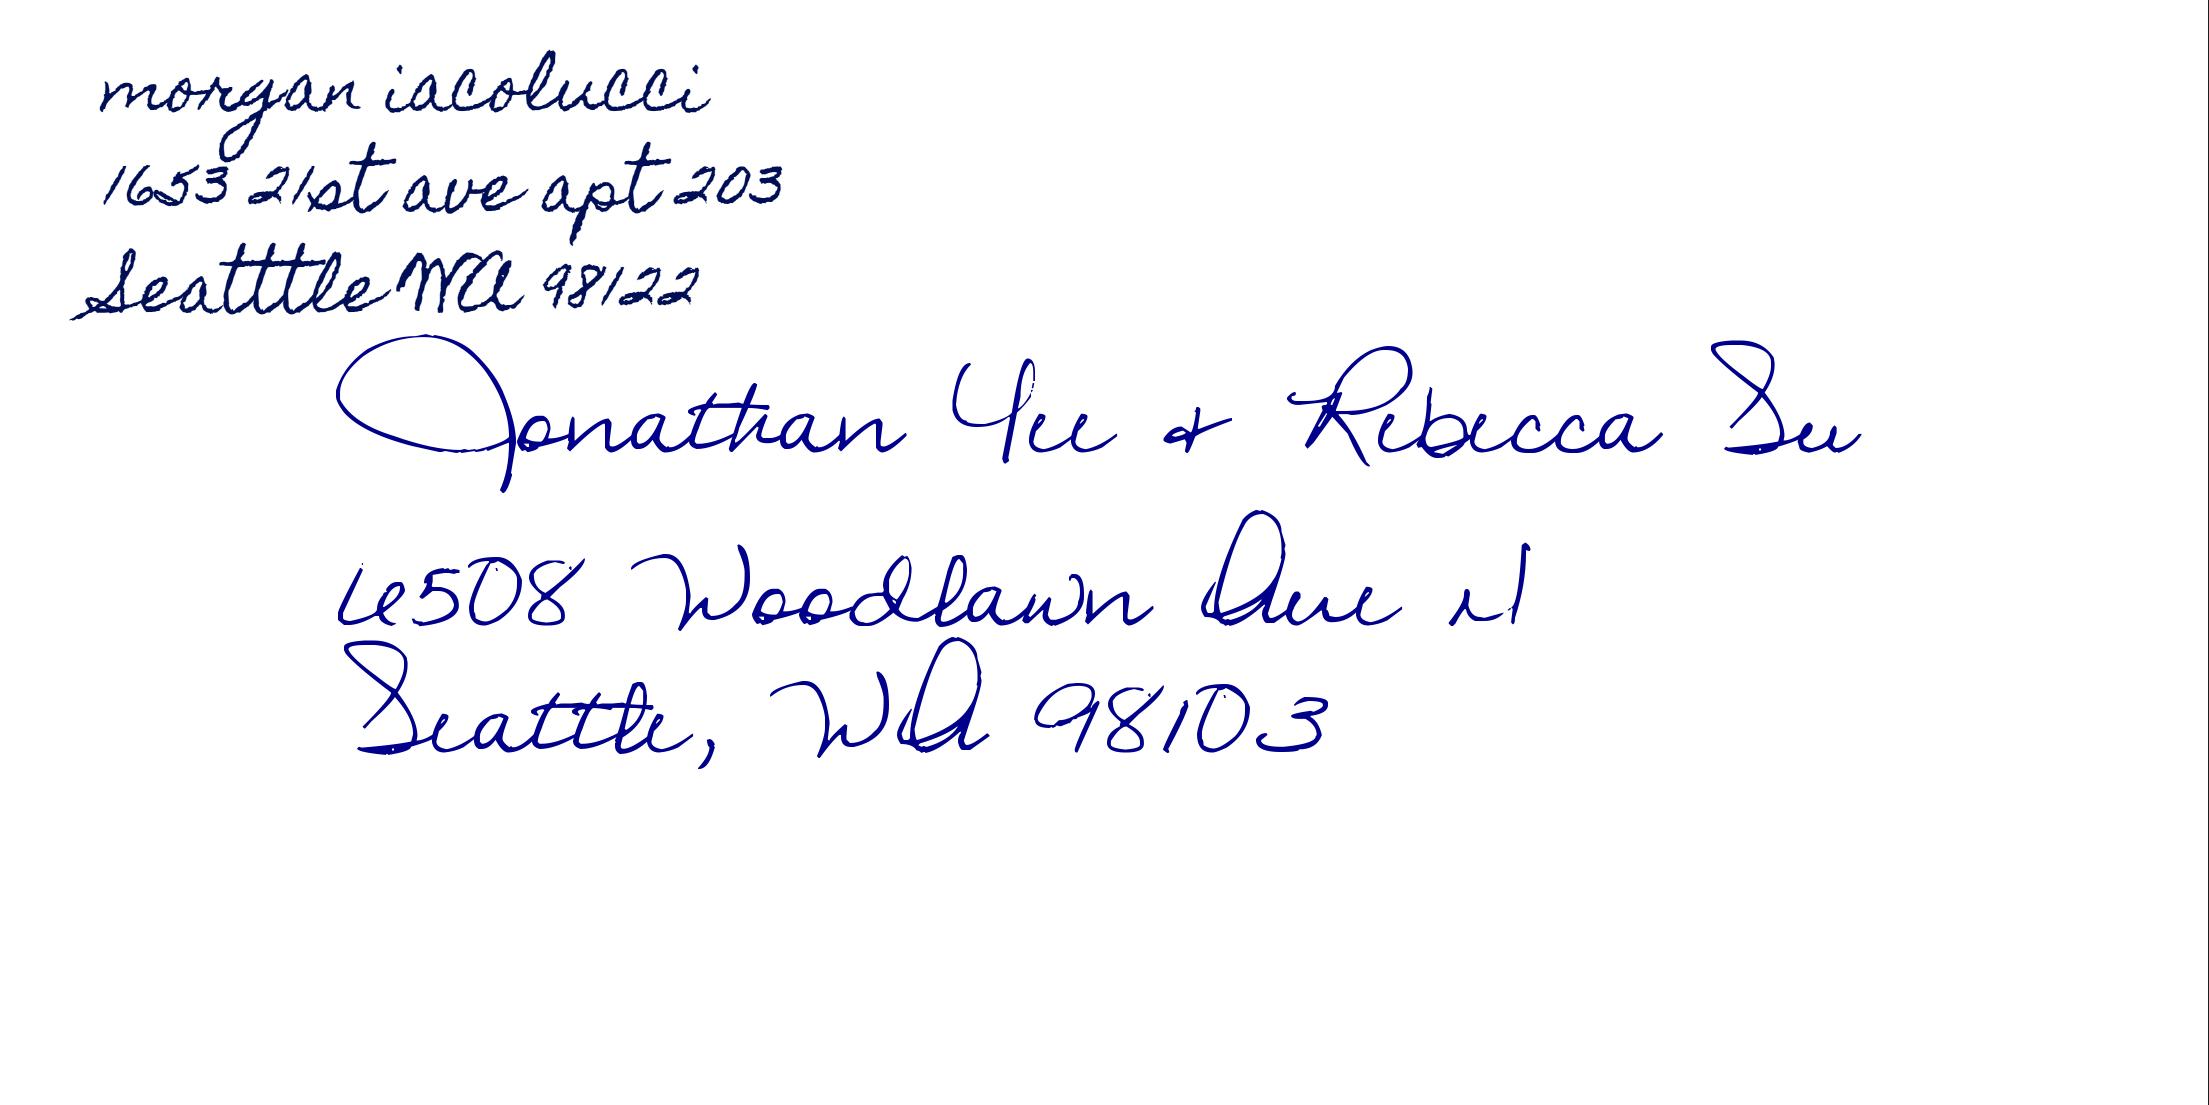 morgan iacolucci
1653 21st ave apt 203
Seatttle WA 98122
Jonathan Yee & Rebecca Su
6508 Woodlawn Ave N
Seattle, WA 98103